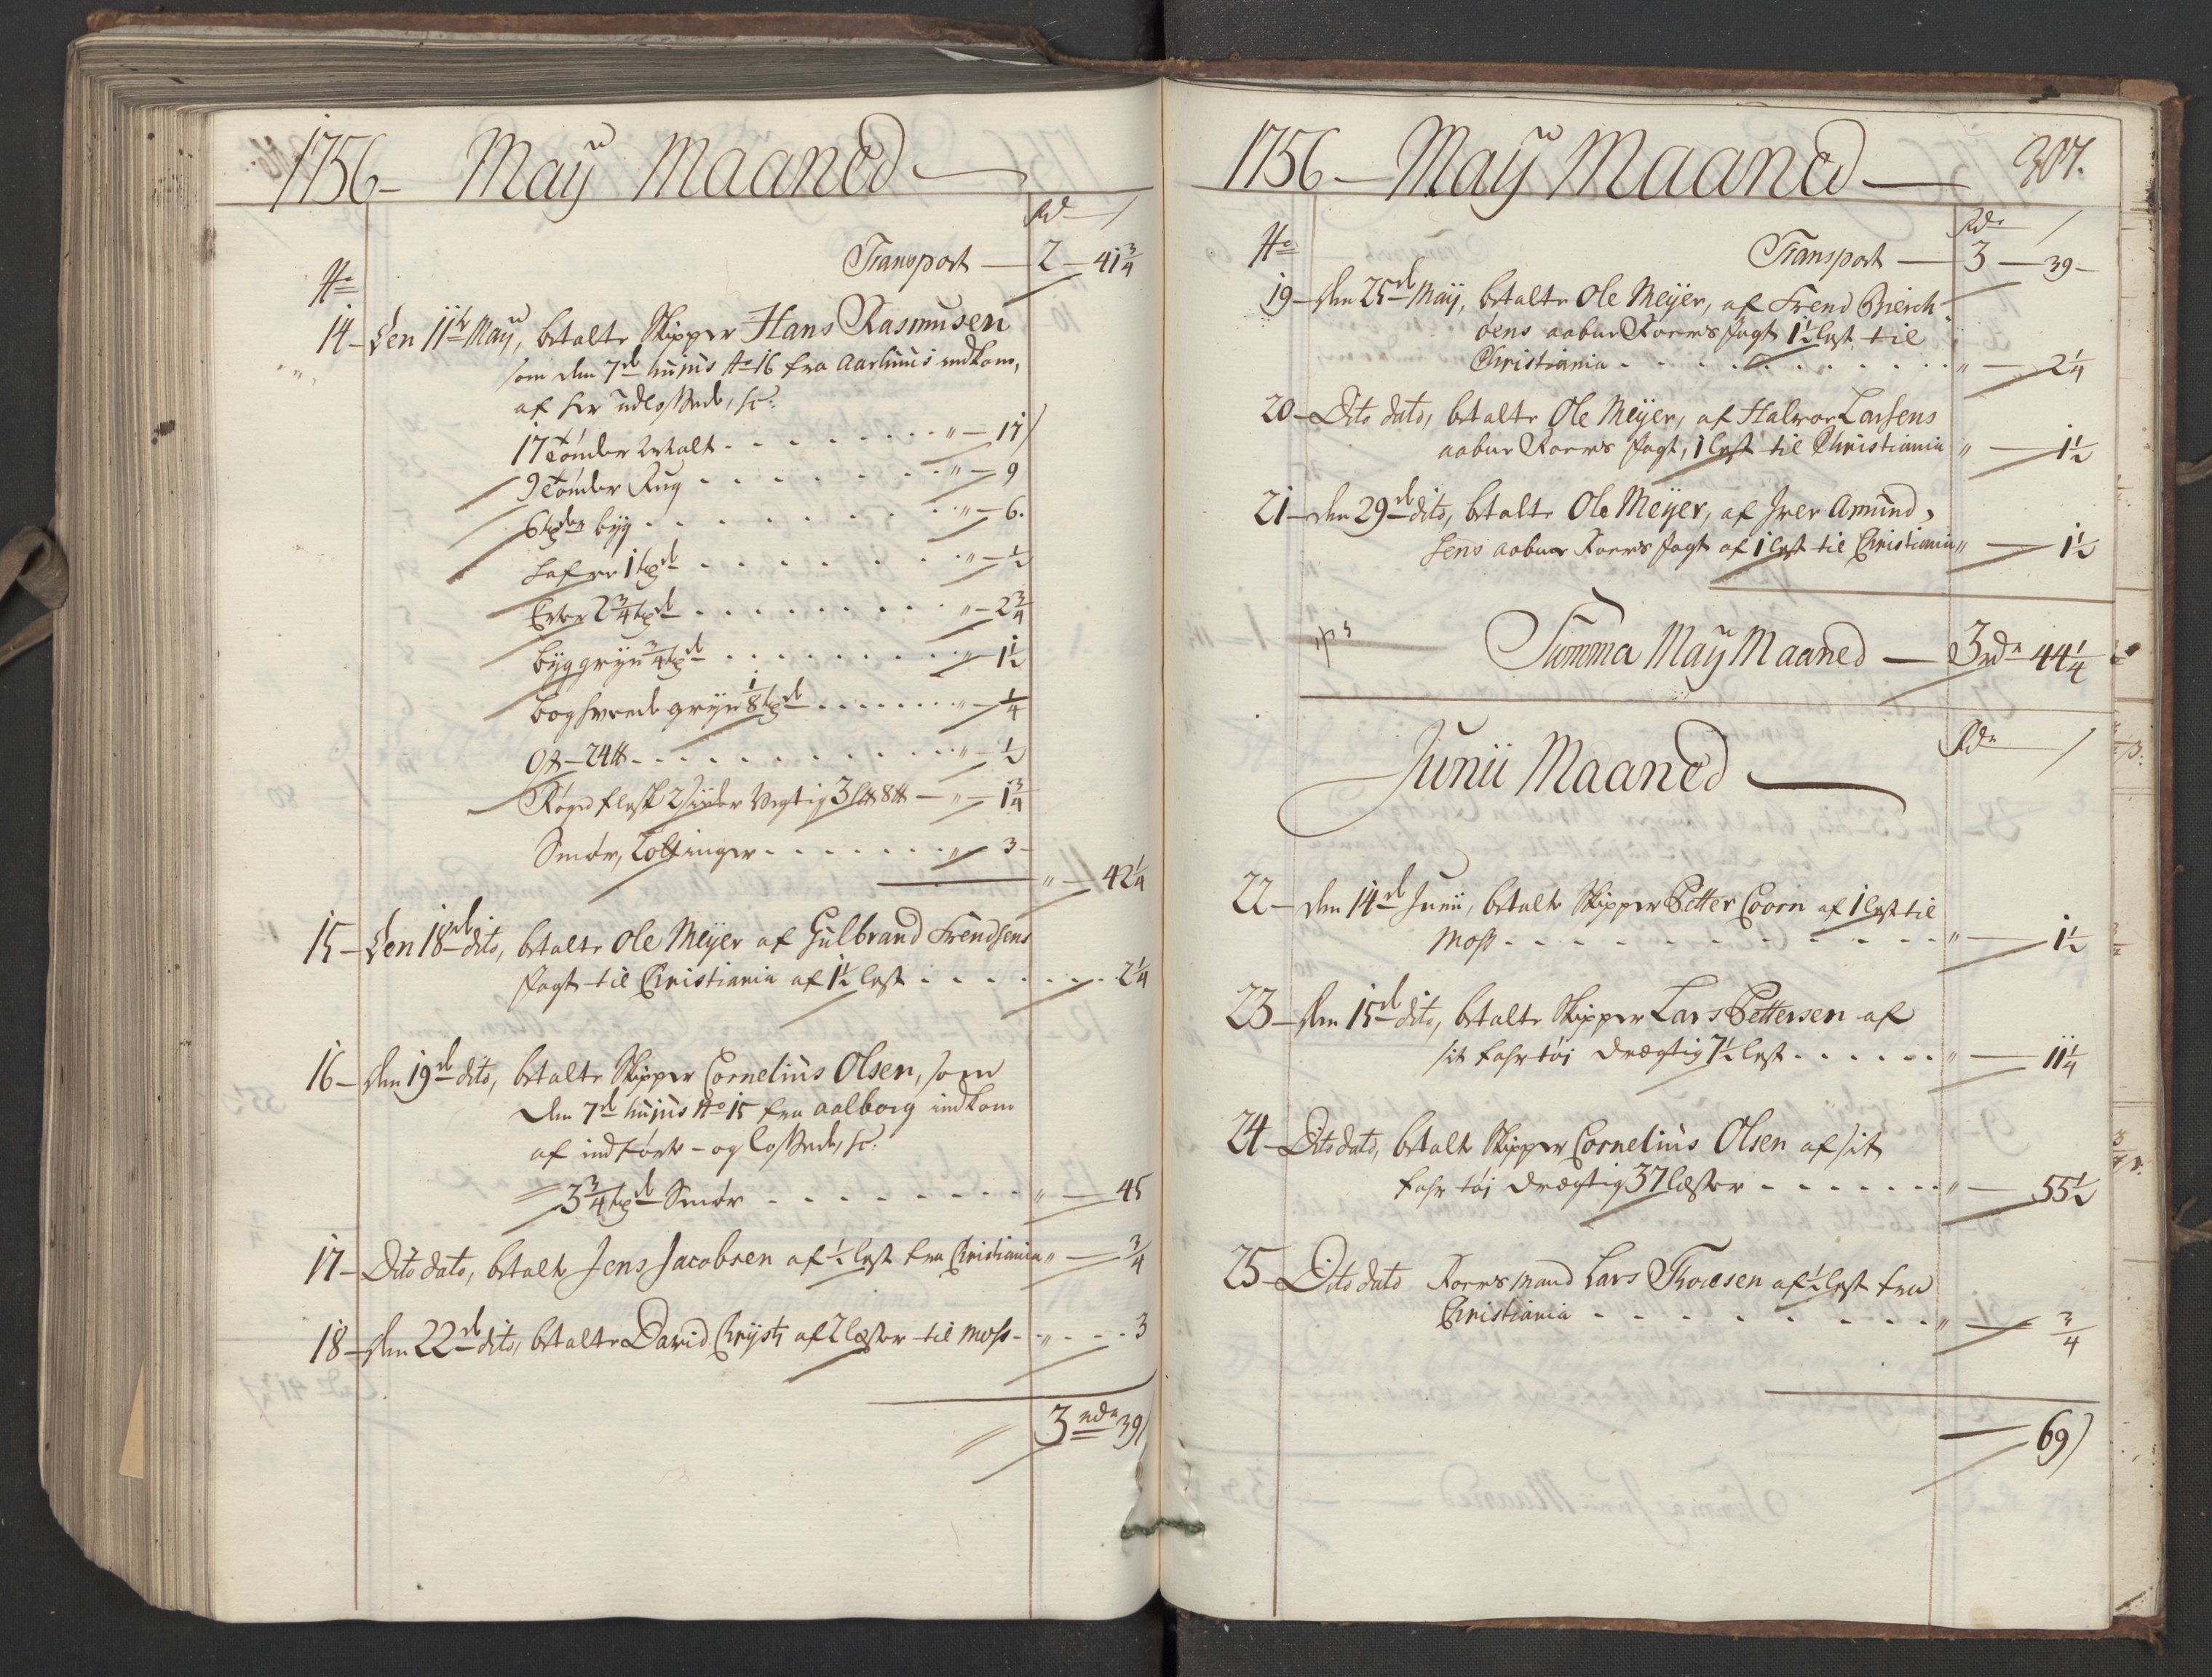 1756 – Maÿ Maaned
Rd
Transport – 2 – 41 3/4
No
14 – Den 11te Maÿ, betalte Skipper Hans Rasmusen
som den 7de hujus No 16 fra Aarhuus indkom,
af her udlossede, sc:
17 Tønder Malt - - - " – 17
9 Tønder Rug - - - " – 9
6 tdr byg - - - " – 6.
Hafre 1 td - - - " – 1/2
Erter 2 3/4 td - - - " – 2 3/4
Byggryn 3/4 td - - - " – 1 1/2
boghvede gryn 1/8 td - - - " – 1/4
Ost – 24 ℔ - - - " – 1/2
Røged flesk 2 sider vegtig 3 L℔ 8 ℔ – " – 1 3/4
Smør, 2 ottinger - - - " – 3 –
" – 42 1/4
15 – Den 18de dito, betalte Ole Meÿer af Gulbrand Trendsens
fragt til Christiania af 1 1/2 lest - - - 2 1/4
16 – den 19de dito, betalte Skipper Cornelius Olsen, som
den 7de hujus No 15 fra Aalborg indkom
af indførte – og lossede, sc:
3 3/4 td Smør - - - " – 45
17 – Dito dato, betalte Jens Jacobsen af 1/2 lest fra Christiania " – 3/4
18 – den 22de dito, betalte David Chrÿstj af 2 lester til Moss - " - - 3
3 rdr 39
1756 – Maÿ Maaned – 307.
Rdr
No
Transport – 3 – 39 –
19 – den 25de Maÿ, betalte Ole Meÿer, af Trend Bierch-
øens aabne Roers fragt 1 1/2 lest til
Christiania - - - " – 2 1/4
20 – Dito dato, betalte Ole Meÿer, af Halvor Larsens
aabne Roers fragt, 1 lest til Christiania " – 1 1/2
21 – den 29de dito, betalte Ole Meÿer, af Iver Amund-
sens aabne Roers fragt af 1 lest til Christiania " – 1 1/2
Summa Maÿ Maaned – 3 rdr 44 1/4
Rdr
Junii Maaned
22 – den 14de Junii, betalte Skipper Petter Coorn af 1 lest til
Moss - - - " – 1 1/2
23 – den 15de dito, betalte Skipper Lars Pettersen af
sit fahrtøi drægtig 7 1/2 lest - - - " – 11 1/4
24 – Dito dato, betalte Skipper Cornelius Olsen af sit
fahrtøi drægtig 37 læster - - - " – 55 1/2
25 – Dito dato Roersmand Lars Thoresen af 1/2 lest fra
Christiania - - - " – 3/4
– 69